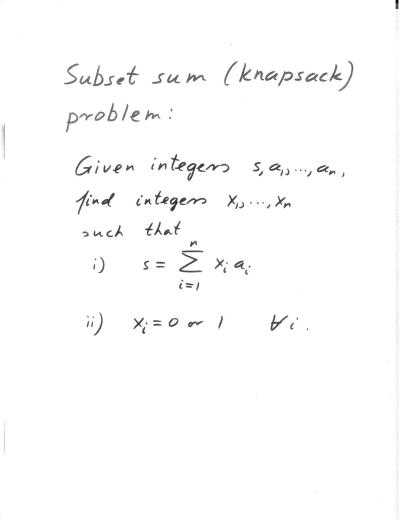 Subset sum (knapsack)
problem:
Given integers s, a₁, ..., aₙ,
find integers x₁, ..., xₙ
such that
i) s = ∑ᵢ₌₁ⁿ xᵢ aᵢ
ii) xᵢ = 0 or 1 ∀ i.